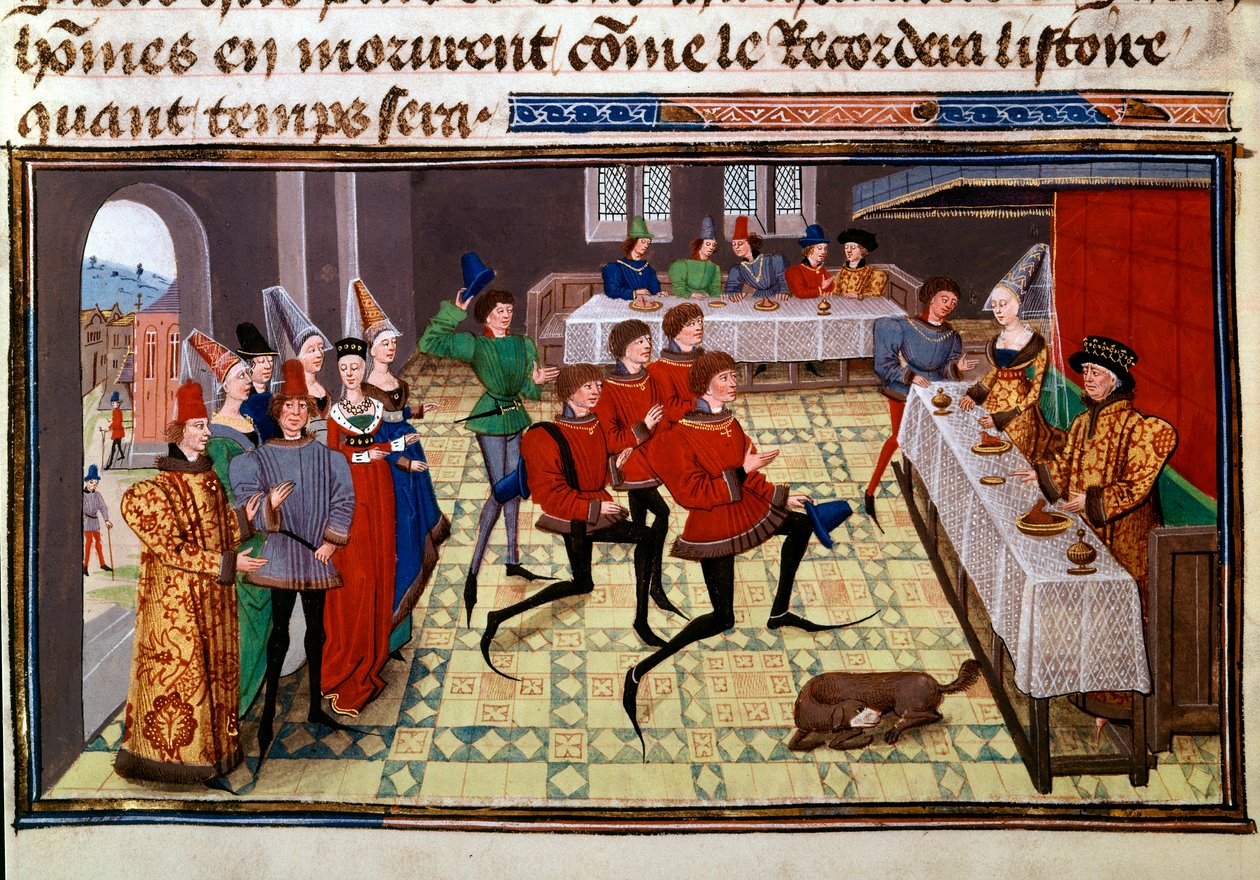 hōmes en moururent / cōme le Recordera listoire /
quant temps sera.